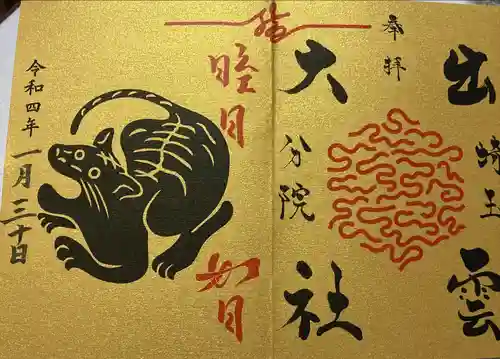 奉拝
出雲
埼玉
大社
分院
結
睦月
如月
令和四年
一月三十日